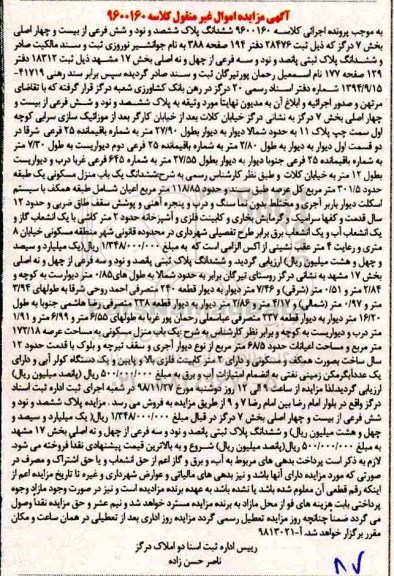 آگهی مزایده اموال غیر منقول کلاسه ۹۶۰۰۱۶۰
به موجب پرونده اجرائی کلاسه ۹۶۰۰۱۶۰ ششدانگ پلاک ششصد و نود و شش فرعی از بیست و چهار اصلی
بخش ۷ درگز که ذیل ثبت ۲۸۴۷۶ دفتر ۱۹۴ صفحه ۳۸۸ به نام جوانشیر نوروزی ثبت و سند مالکیت صادر
و ششدانگ پلاک ثبتی پانصد و نود و سه فرعی از چهل و نه اصلی بخش ۱۷ مشهد ذیل ثبت ۱۸۳۱۲ دفتر
۱۲۹ صفحه ۱۷۷ نام اسمعیل رحمان پورتیرگان ثبت و سند صادر گردیده سپس برابر سند رهنی ۴۱۷۱۹-
۱۳۹۴/۹/۱۵ شماره دفتر اسناد رسمی ۲۰ درگز در رهن بانک کشاورزی شعبه درگز قرار گرفته که با تقاضای
مرتهن و صدور اجرائیه و ابلاغ آن به مدیون نهایتا مورد وثیقه به پلاک ششصد و نود و شش فرعی از بیست و
چهار اصلی بخش ۷ درگز به نشانی درگز خیابان کلات بعد از خیابان کارگر بعد از موزائیک سازی سرابی کوچه
اول سمت چپ پلاک ۱۱ به حدود شمالا دیوار به دیوار بطول ۲۷/۹۰ متر به شماره باقیمانده ۲۵ فرعی شرقا در
دو قسمت اول دیوار به دیوار بطول ۲/۸۰ متر به شماره باقیمانده ۲۵ فرعی دوم دیواریست به طول ۷/۳۰ متر
به شماره باقیمانده ۲۵ فرعی جنوبا دیوار به دیوار بطول ۲۷/۵۵ متر به شماره ۶۴۵ فرعی غربا درب و دیواریست
بطول ۱۲ متر به خیابان کلات و طبق نظر کارشناس رسمی به شرح:ششدانگ یک باب منزل مسکونی یک طبقه
حدود ۳۰۱/۵ متر مربع کل عرصه طبق سند و حدود ۱۱۸/۸۵ متر مربع اعیان شامل طبقه همکف با سیستم
اسکلت دیوار باربر آجری و مختلط بدون نما سنگ و درب و پنجره آهنی و پوشش سقف طاق ضربی و حدود ۱۲
سال قدمت و کفها سرامیک و گرمایش بخاری و کابینت فلزی و آشپزخانه حدود ۲ متر کاشی با یک انشعاب گاز و
یک انشعاب آب و یک انشعاب برق برابر طرح تفصیلی شهرداری در محدوده قانونی شهر منطقه مسکونی خیابان ۸
متری و رعایت ۴ متر عقب نشینی از اکس الزامی است که به مبلغ ۱/۳۴۸/۰۰۰/۰۰۰ ریال(یک میلیارد و سیصد
و چهل و هشت میلیون ریال) ارزیابی گردید. و ششدانگ پلاک ثبتی پانصد و نود و سه فرعی از چهل و نه اصلی
بخش ۱۷ مشهد به نشانی درگز روستای تیرگان برابر به حدود شمالا به طول های ۰/۸۵ متر دیواریست به کوچه و
۲/۸۴ متر و ۰/۵۱ متر (شرقی) و ۷/۴۶ متر دیوار به دیوار قطعه ۲۴۰ متصرفی احمد روحی شرقا به طولهای ۳/۹۴
متر و ۰/۹۷ متر (شمالی) و ۴/۱۷ متر و ۲/۸۶ متر دیوار به دیوار قطعه ۲۳۸ متصرفی رضا هاشمی جنوبا به طول
۱۶/۲۰ متر دیوار به دیوار قطعه ۲۳۷ متصرفی عباسعلی رحمان پور غربا به طولهای ۶/۵۵ متر و ۶/۹۹ متر و ۱/۹۱
متر درب و دیواریست به کوچه و برابر نظر کارشناس به شرح:یک باب منزل مسکونی به مساحت عرصه ۱۷۲/۱۸
متر مربع و مساحت اعیانات حدود ۶۸/۵ متر مربع از نوع دیوار آجری و سقف تیرچه و بلوک با قدمت حدود ۱۲
سال ساخت بصورت همکف و مسکونی و دارای ۲ متر کابینت فلزی بالا و پایین و یک دستگاه کولر آبی و دارای
یک عددآبگرمکن زمینی نفتی به انضمام امتیازات آب و برق به مبلغ ۵۰۰/۰۰۰/۰۰۰ ریال (پانصد میلیون ریال)
ارزیابی گردیدلذا مزایده از ساعت ۹ الی ۱۲ روز دوشنبه مورخ ۹۸/۱۱/۲۷ در شعبه اجرای ثبت اداره ثبت اسناد
درگز واقع در بلوار امام رضا بین امام رضا ۷ و ۹ از طریق مزایده به فروش می رسد . مزایده پلاک ششصد و نود و
شش فرعی از بیست و چهار اصلی بخش ۷ درگز در قبال مبلغ ۱/۳۴۸/۰۰۰/۰۰۰ ریال( یک میلیارد و سیصد و
چهل و هشت میلیون ریال) و ششدانگ پلاک ثبتی پانصد و نود و سه فرعی از چهل و نه اصلی بخش ۱۷ مشهد
به مبلغ ۵۰۰/۰۰۰/۰۰۰ ریال(پانصد میلیون ریال) شروع و به بالاترین قیمت پیشنهادی نقدا فروخته می شود.
لازم به ذکر است پرداخت بدهی های مربوط به آب و برق و گاز اعم از حق انشعاب و یا حق اشتراک و مصرف در
صورتی که مورد مزایده دارای آنها باشد و نیز بدهی های مالیاتی و عوارض شهرداری و غیره تا تاریخ مزایده اعم از
اینکه رقم قطعی آن معلوم شده باشد یا نشده باشد به عهده برنده مزایده است و نیز در صورت وجود مازاد وجوه
پرداختی بابت هزینه های فو از محل مازاد به برنده مزایده مسترد خواهد شد و نیم عشر و حق مزایده نقداً وصول
می گردد ضمناً چنانچه روز مزایده تعطیل رسمی گردد مزایده روز اداری بعد از تعطیلی در همان ساعت و مکان
مقرر برگزار خواهد شد. آ-۹۸۱۳۰۲۱
رییس اداره ثبت اسناد و املاک درگز
ناصر حسن زاده